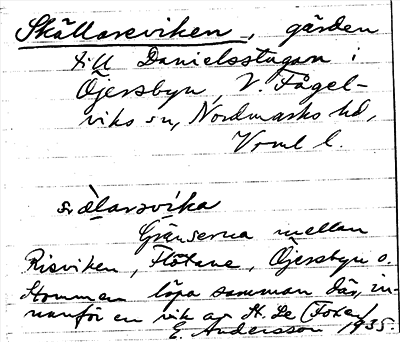 Skällareviken, gården
till Danielsstugan i
Öjersbyn, V. Fågel-
viks sn, Nordmarks hd,
Vrml l.
Gränserna mellan
Risviken, Flötane, Öjersbyn o.
Stommen löpa samman där, in-
nanför en vik av St. Le (Foxen
E. Andersson 1935.